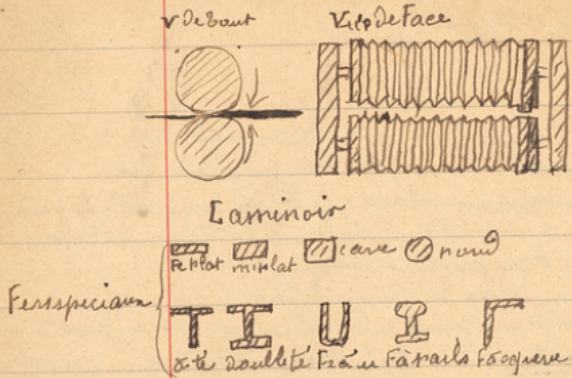 v de bout Vue de Face
Laminoir
Fe plat miplat carre rond
Fers speciaux
à té double té F à u F à rails F à